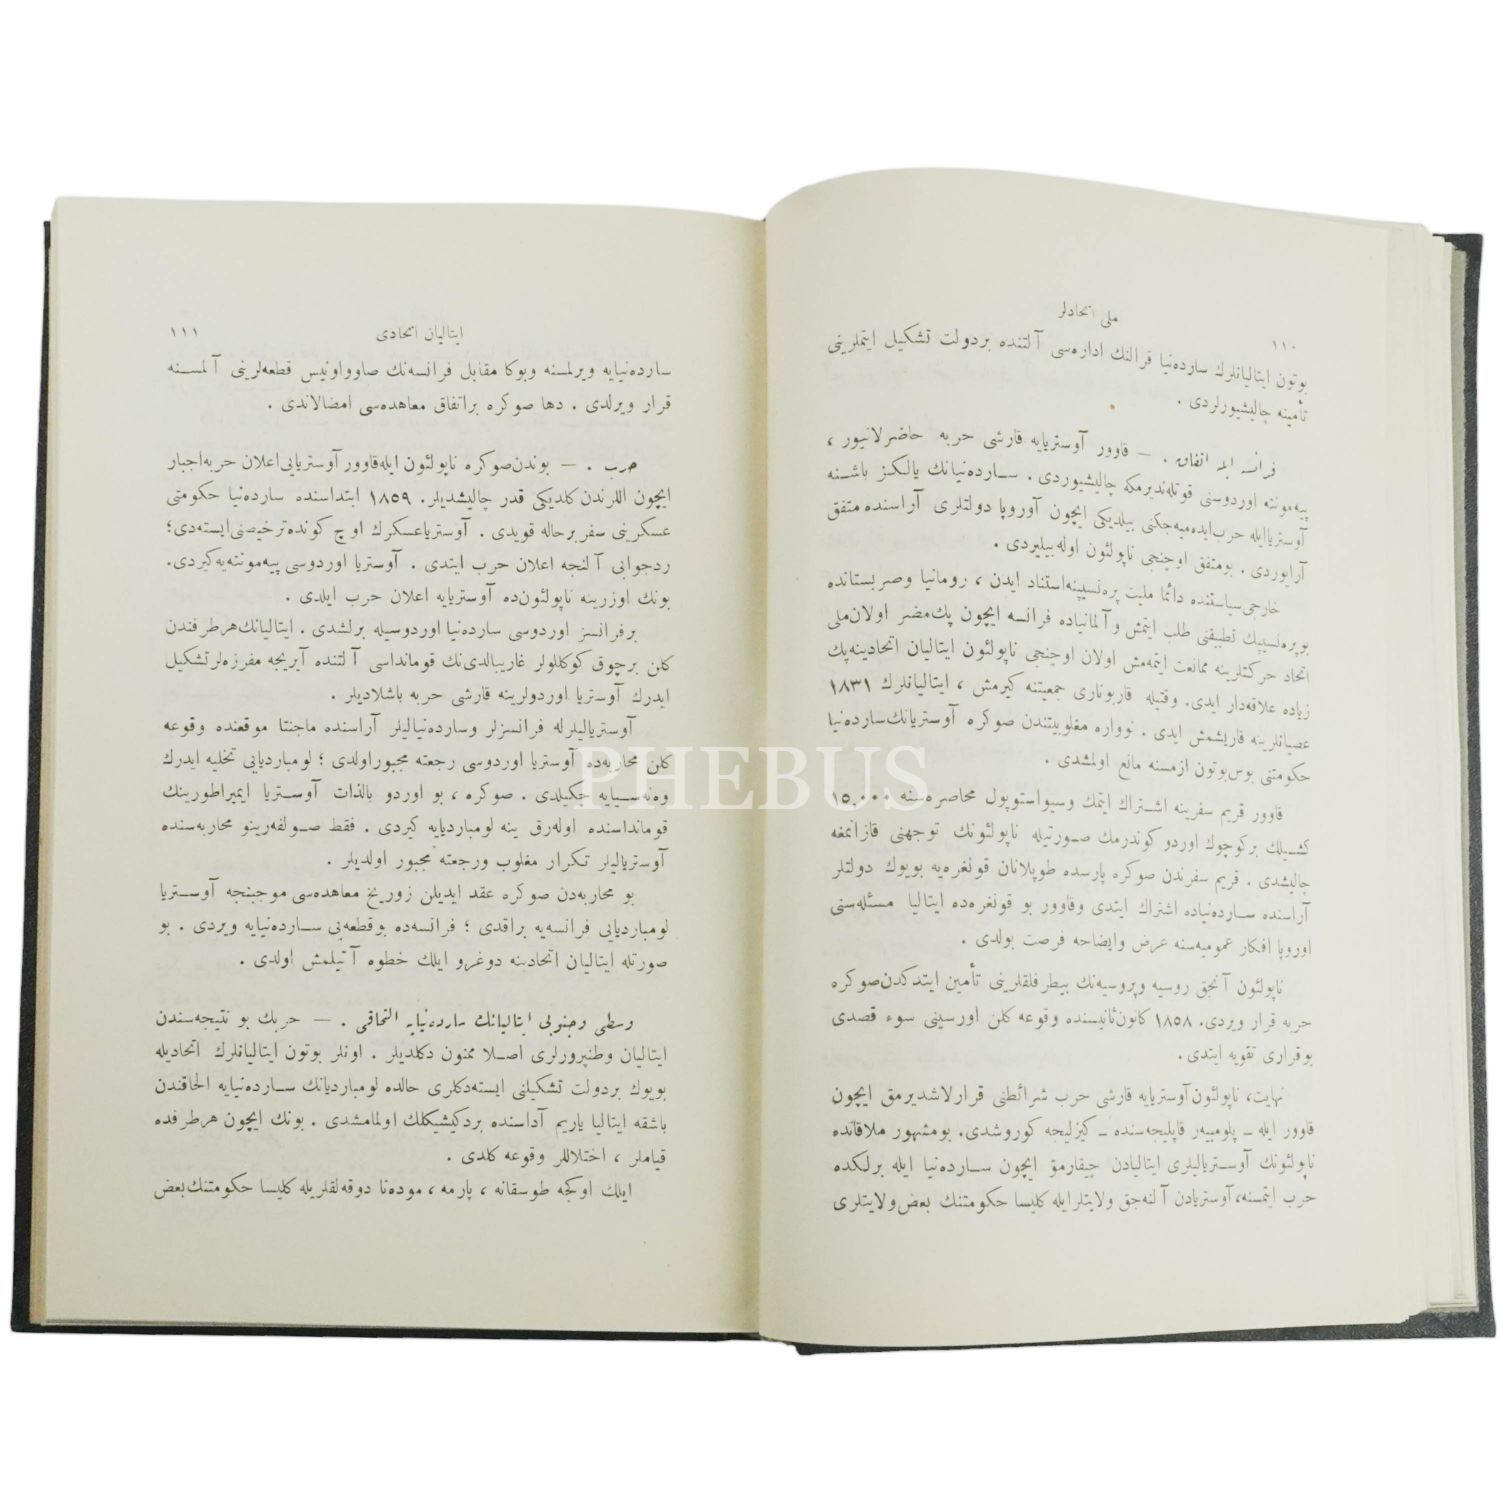 ١١٠
ملی اتحادلر
بوتون ایتالیانلرك ساردەنیا قرالنك ادارەسی آلتندە بردولت تشکیل ایتملرینی
تأمینه چالیشیورلردی .
فرانسه ایله اتفاق . — قاوور آوستریایه قارشی حربه حاضرلانیور ،
پیەمونته اوردوسنی قوتلەندیرمکه چالیشیوردی . ساردەنیانك یالکز باشنه
آوستریاایله حرب‌ایدەمیەجکنی بیلدیکی ایچون آوروپا دولتلری آراسندە متفق
آرایوردی . بومتفق اوچنجی ناپولئون اولەبیلیردی .
خارجی‌سیاستندە دائما ملیت پرەنسیپنه‌استناد ایدن ، رومانیا وصربستاندە
بوپرەنسیپك تطبیقنی طلب ایتمش وآلمانیادە فرانسه ایچون پك‌مضر اولان‌ملی
اتحاد حرکتلرینه ممانعت ایتمەمش اولان اوچنجی ناپولئون ایتالیان اتحادینه‌پك
زیادە علاقەدار ایدی. وقتیله قاربوناری جمعیتنه کیرمش ، ایتالیانلرك ١٨٣١
عصیانلرینه قاریشمش ایدی . نووارە مغلوبیتندن صوکرە آوستریانك‌ساردەنیا
حکومتنی بوس‌بوتون ازمسنه مانع اولمشدی .
قاوور قریم سفرینه اشتراك ایتمك وسیواستوپول محاصرەسنه ١٥,٠٠٠
کشیلك برکوچوك اوردو کوندرمك صورتیله ناپولئونك توجهنی قازانمغه
چالیشدی . قریم سفرندن صوکرە پارسدە طوپلانان قونغرەیه بویوك دولتلر
آراسندە ساردەنیادە اشتراك ایتدی وقاوور بو قونغرەدە ایتالیا مسئلەسنی
اوروپا افکار عمومیەسنه عرض وایضاحه فرصت بولدی .
ناپولئون آنجق روسیه وپروسیەنك بیطرفلقلرینی تأمین ایتدکدن‌صوکرە
حربه قرار ویردی. ١٨٥٨ کانون‌ثانیسندە وقوعه کلن اورسینی سوء قصدی
بوقراری تقویه ایتدی .
نهایت، ناپولئون‌آوستریایه قارشی حرب شرائطنی قرارلاشدیرمق ایچون
قاوور ایله ــ پلومبیەر قاپلیجەسندە ــ کیزلیجه کوروشدی. بومشهور ملاقاتدە
ناپولئونك آوستریالیلری ایتالیادن چیقارمق ایچون ساردەنیا ایله برلکدە
حرب ایتمسنه، آوستریادن آلنەجق ولایتلرایله کلیسا حکومتنك بعض‌ولایتلری
ایتالیان اتحادی
١١١
ساردەنیایه ویرلمسنه وبوکا مقابل فرانسەنك صاوواونیس قطعەلرینی آلمسنه
قرار ویرلدی . دها صوکرە براتفاق معاهدەسی امضالاندی .
حرب . — بوندن‌صوکرە ناپولئون ایله‌قاوور آوستریایی‌اعلان حربه‌اجبار
ایچون اللرندن کلدیکی قدر چالیشدیلر. ١٨٥٩ ابتداسندە ساردەنیا حکومتی
عسکرینی سفربرحاله قویدی . آوستریاعسکرك اوچ کوندەترخیصنی‌ایستەدی؛
ردجوابی آلنجه اعلان حرب ایتدی . آوستریا اوردوسی پیەمونتەیه‌کیردی.
بونك اوزرینه ناپولئون‌دە آوستریایه اعلان حرب ایلدی .
برفرانسز اوردوسی ساردەنیا اوردوسیله برلشدی . ایتالیانك‌هرطرفندن
کلن برچوق کوکللولر غاریبالدی‌نك قومانداسی آلتندە آیریجه مفرزەلرتشکیل
ایدرك آوستریا اوردولرینه قارشی حربه باشلادیلر .
آوستریالیلرله فرانسزلر وساردەنیالیلر آراسندە ماجنتا موقعندە وقوعه
کلن محاربەدە آوستریا اوردوسی رجعته مجبوراولدی ؛ لومباردیایی تخلیه ایدرك
وەنەسیایه چکیلدی . صوکرە ، بو اوردو بالذات آوستریا ایمپراطورینك
قومانداسندە اولەرق ینه لومباردیایه کیردی . فقط صولفەرینو محاربەسندە
آوستریالیلر تکرار مغلوب ورجعته مجبور اولدیلر .
بو محاربەدن صوکرە عقد ایدیلن زوریخ معاهدەسی موجبنجه آوستریا
لومباردیایی فرانسەیه براقدی ؛ فرانسەدە بوقطعەیی ساردەنیایه ویردی . بو
صورتله ایتالیان اتحادینه دوغرو ایلك خطوە آتیلمش اولدی .
وسطی وجنوبی ایتالیانك ساردەنیایه التحاقی . — حربك بو نتیجەسندن
ایتالیان وطنپرورلری اصلا ممنون دکلدیلر . اونلر بوتون ایتالیانلرك اتحادیله
بویوك بردولت تشکیلنی ایستەدکلری حالدە لومباردیانك ساردەنیایه الحاقندن
باشقه ایتالیا یاریم آداسندە بردکیشیکلك اولمامشدی . بونك ایچون هرطرفدە
قیاملر ، اختلاللر وقوعه کلدی .
ایلك اوکجه طوسقانه ، پارمه ، مودەنا دوقەلقلریله کلیسا حکومتنك‌بعض
PHEBUS